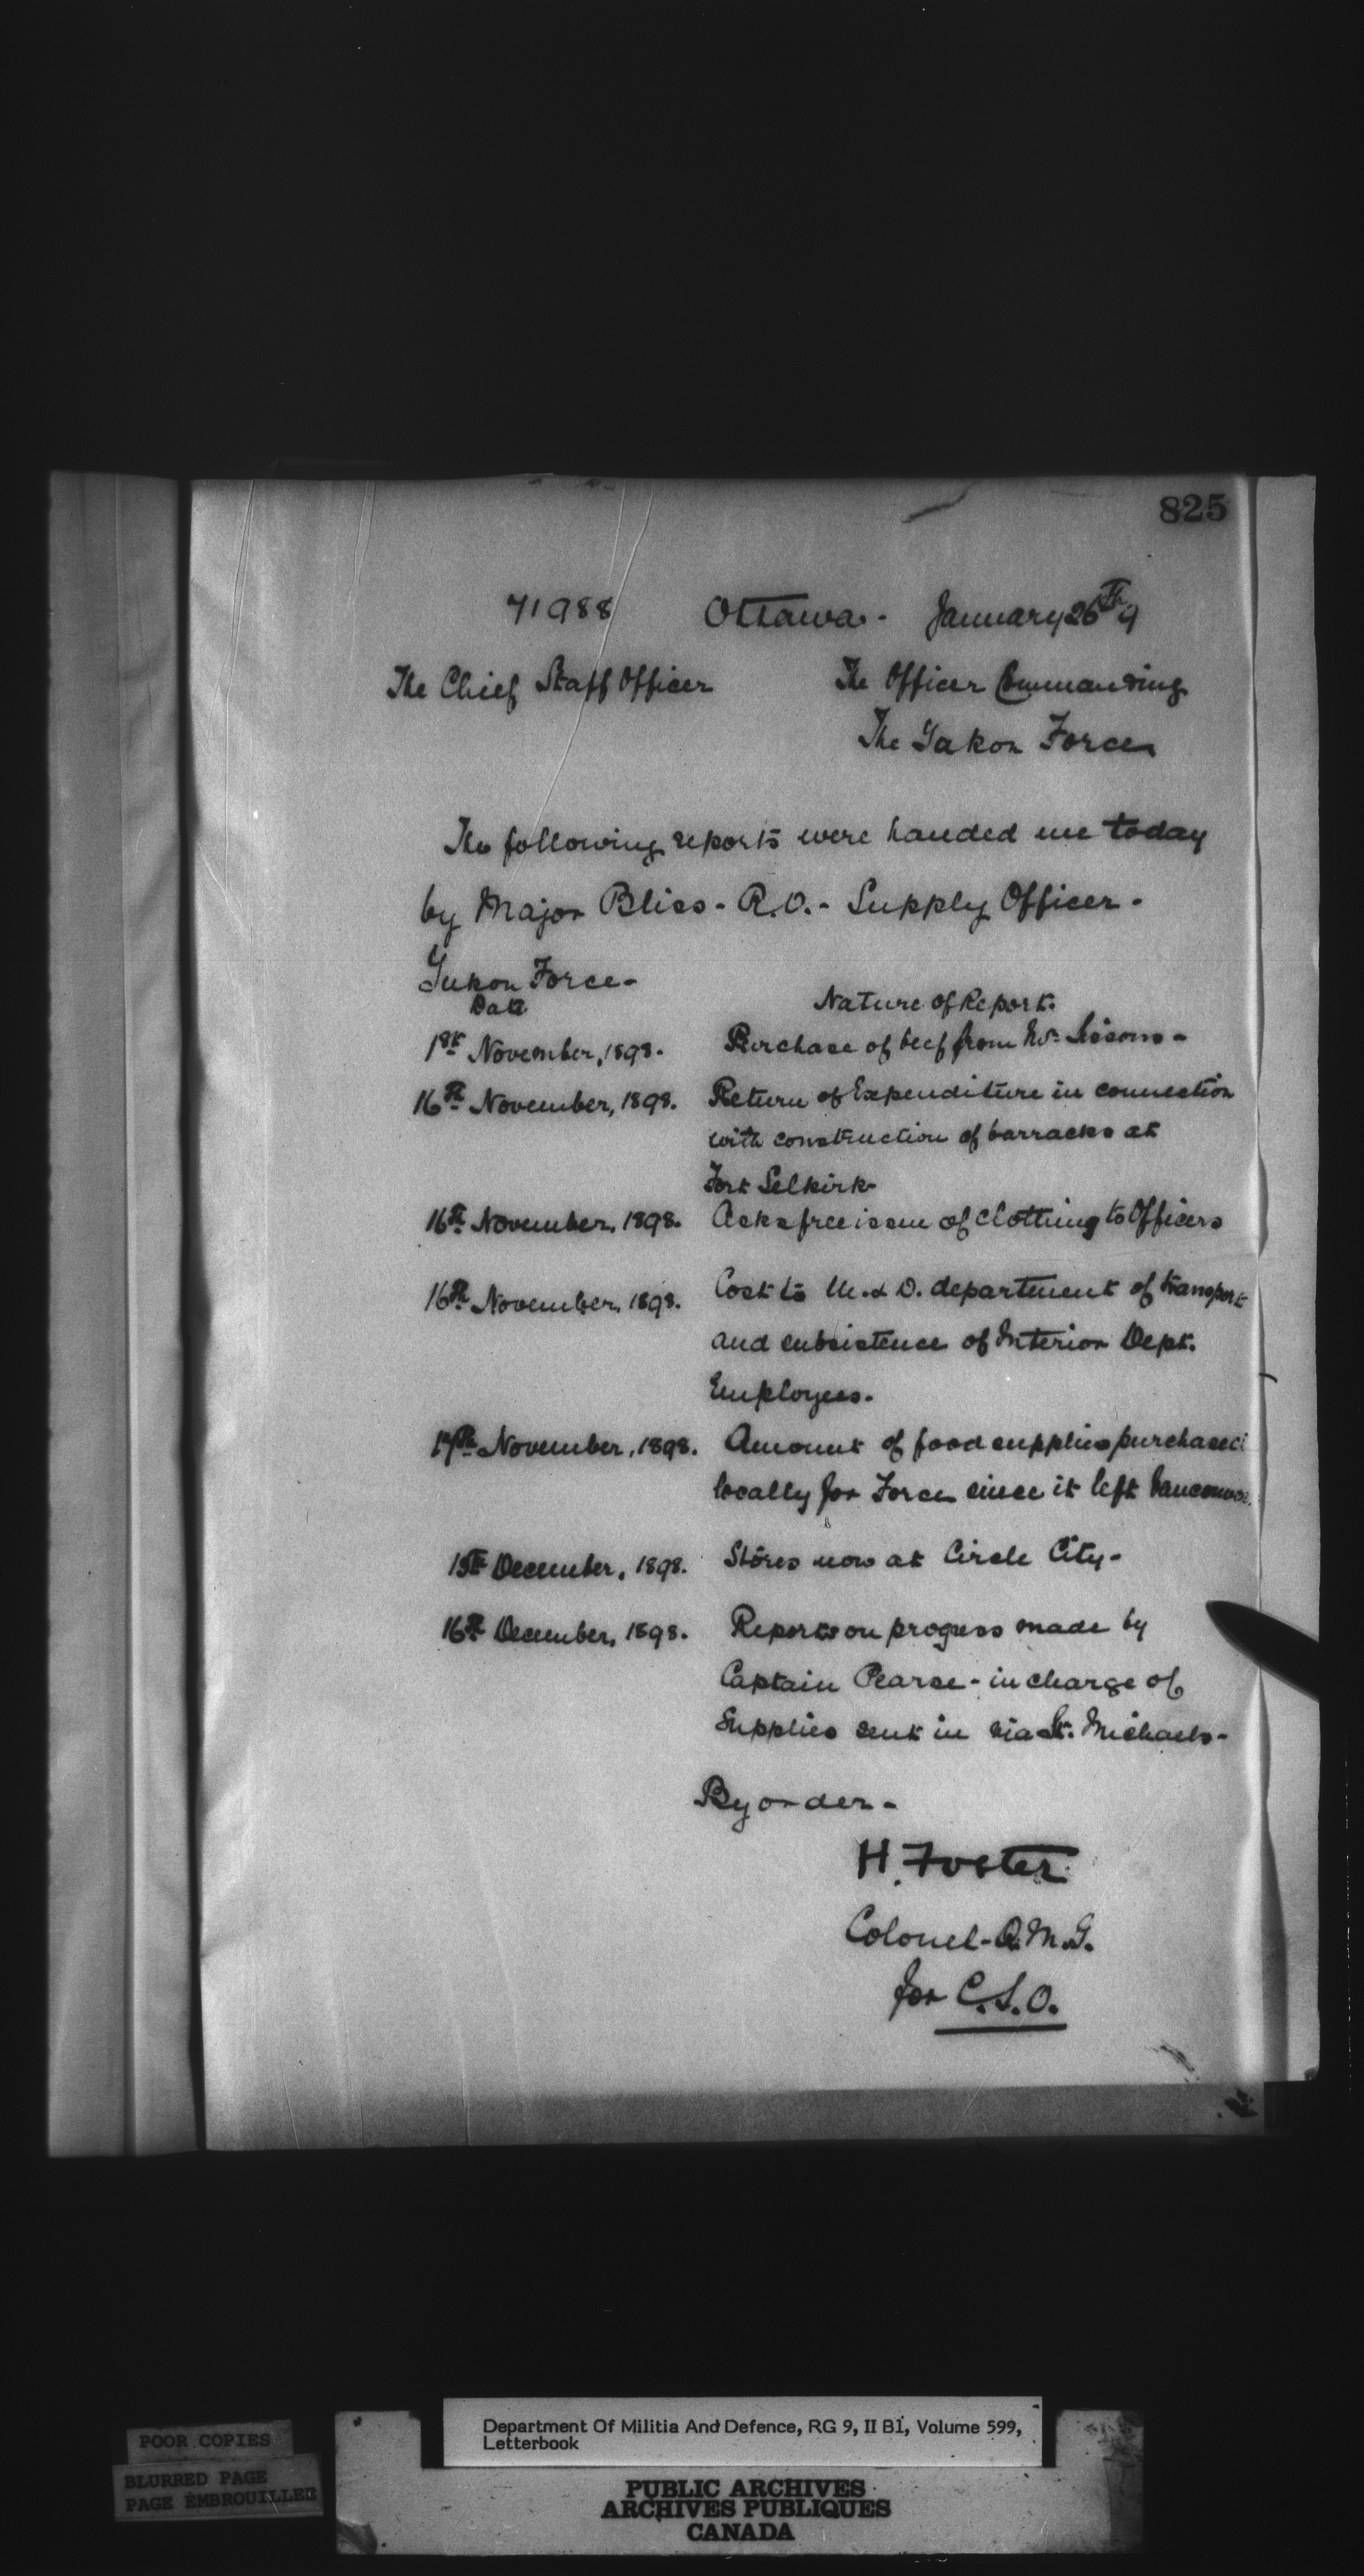 825
71988 Ottawa - January 26th 9
The Chief Staff Officer The Officer Commanding
The Yukon Force
The following reports were handed me today
by Major Bliss - R.O. - Supply Officer -
Yukon Force -
Date Nature of Report.
1st November, 1898. Purchase of beef from Mr. Sissons -
16th November, 1898. Return of Expenditure in connection
with construction of barracks at
Fort Selkirk -
16th November, 1898. Asks free issue of clothing to Officers
16th November, 1898. Cost to M. & D. department of transport
and subsistence of Interior Dept.
Employees.
17th November, 1898. Amount of food supplies purchased
locally for Force since it left Vancouver.
15th December, 1898. Stores now at Circle City -
16th December, 1898. Reports on progress made by
Captain Pearse - in charge of
Supplies sent in via St. Michaels -
By order -
H. Foster
Colonel - Q.M.G.
for C.S.O.
Department Of Militia And Defence, RG 9, II B1, Volume 599,
Letterbook
POOR COPIES
BLURRED PAGE
PAGE EMBROUILLEE
PUBLIC ARCHIVES
ARCHIVES PUBLIQUES
CANADA